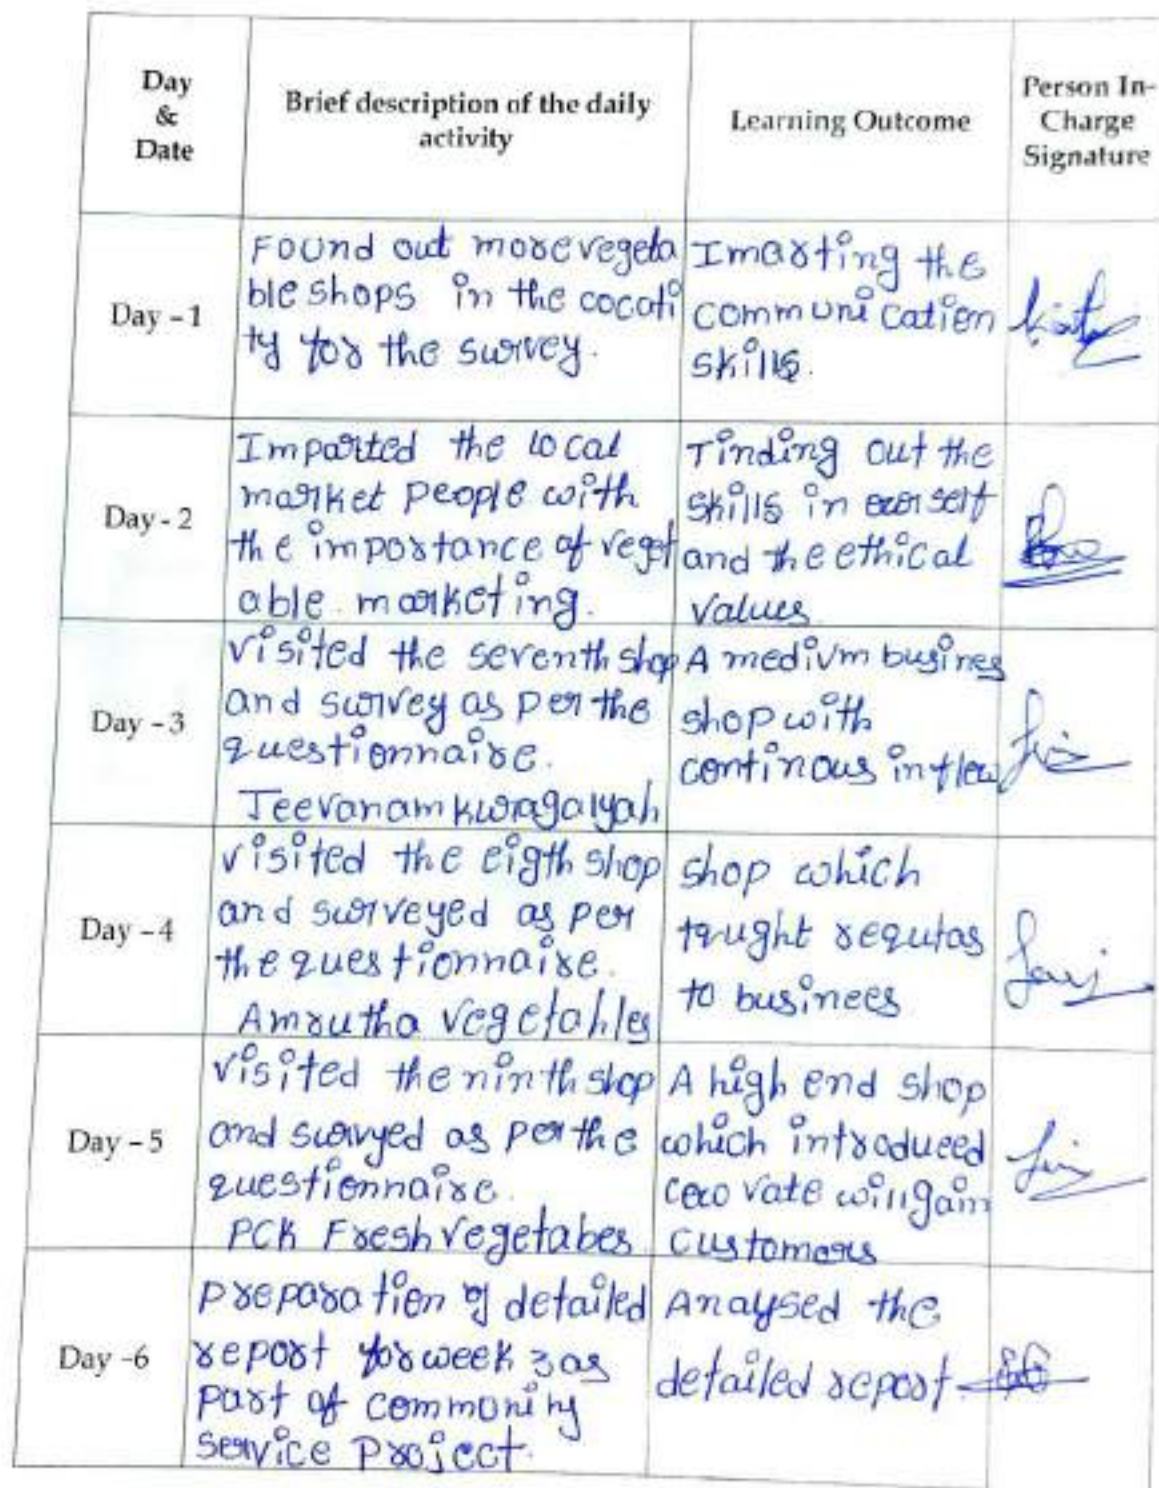 Day
&
Date
Brief description of the daily
activity
Learning Outcome
Person In-
Charge
Signature
Day - 1
Found out more vegeta
ble shops in the cocati
ty for the survey.
Imarting the
communi cation
skills.
Day - 2
Imparted the local
market people with
the importance of veget
able marketing.
Tinding out the
skills in self
and the ethical
values
Day - 3
visited the seventh shop
and survey as per the
questionnaire.
Jeevanam kuragaiyah
A medium busines
shop with
continous inflow
Day - 4
visited the eigth shop
and surveyed as per
the questionnaire.
Amrutha vegetables
shop which
taught
to businees
Day - 5
visited the ninth shop
and survyed as per the
questionnaire.
PCK Fresh vegetabes
A high end shop
which introduced
vate will gain
customers
Day -6
preparation of detailed
report for week 3 as
part of community
service project.
Anaysed the
detailed report.